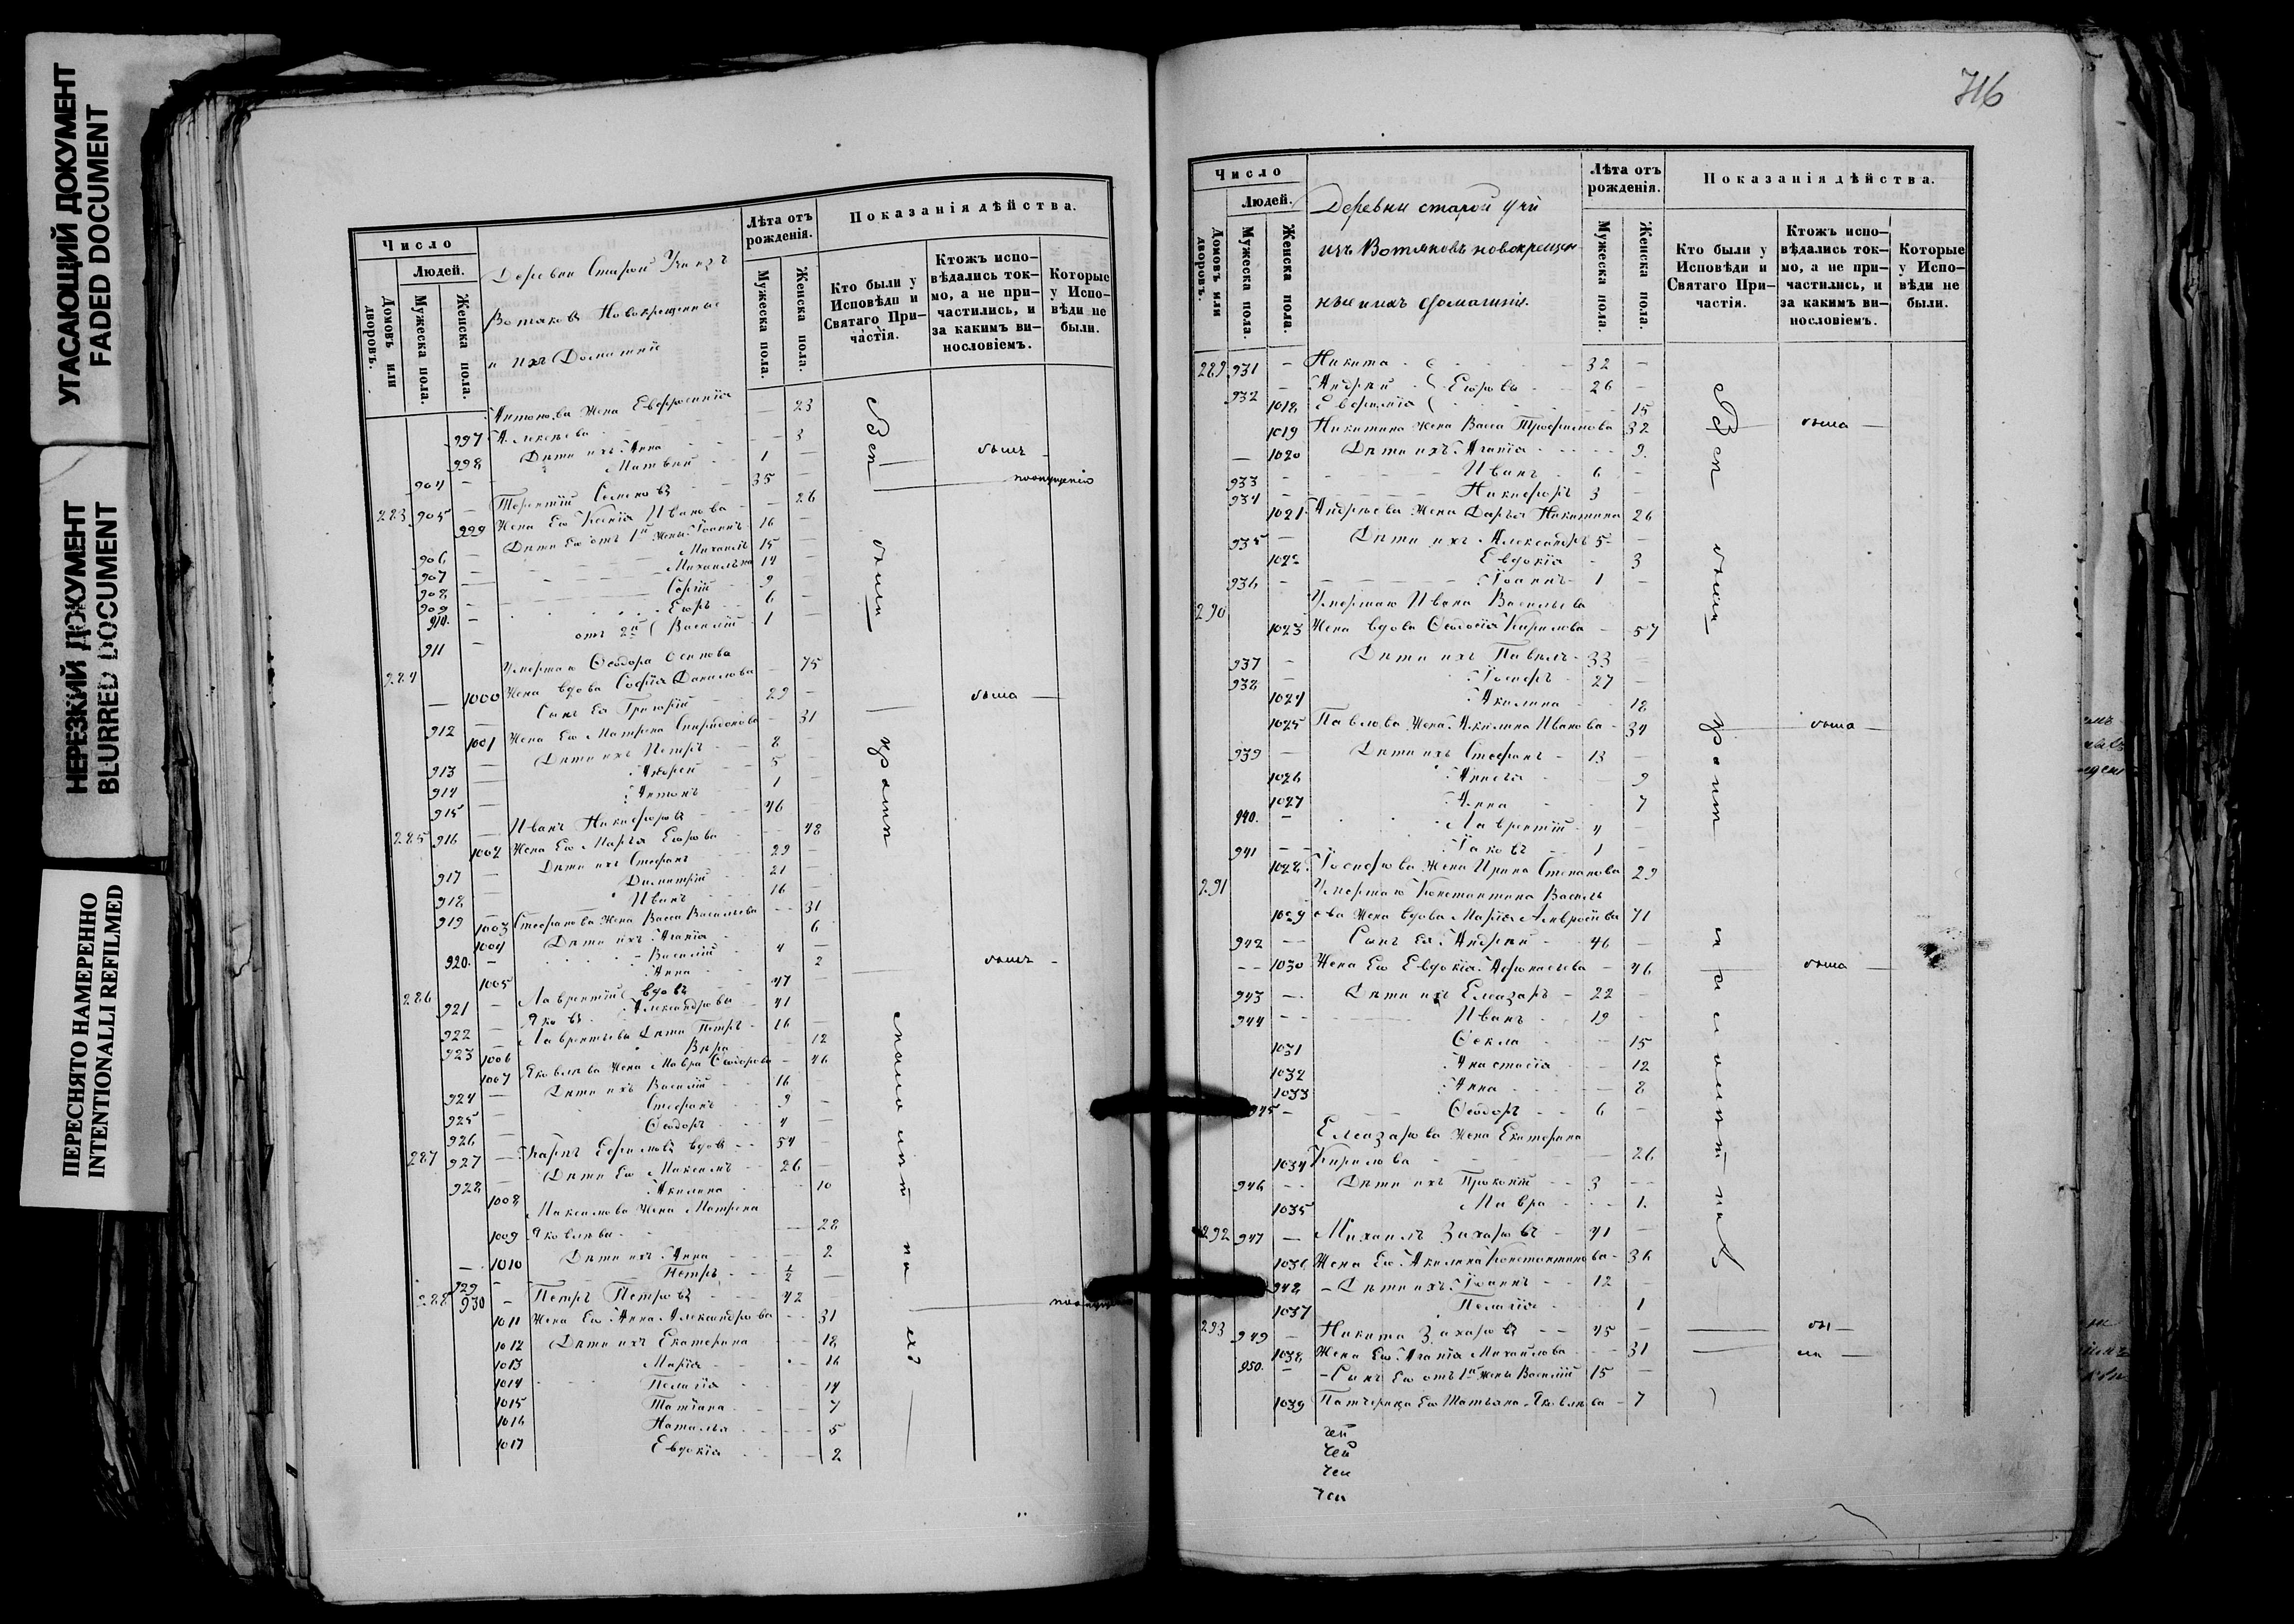 УГАСАЮЩИЙ ДОКУМЕНТ
FADED DOCUMENT
НЕРЕЗКИЙ ДОКУМЕНТ
BLURRED DOCUMENT
ПЕРЕСНЯТО НАМЕРЕННО
INTENTIONALLI REFILMED
Число
Людей.
Домовъ или дворовъ.
Мужеска пола.
Женска пола.
Деревни Старой Учи изъ
Вотяковъ Новокрещенные
и ихъ Домашніе
Лѣта отъ рожденія.
Мужеска пола.
Женска пола.
Показанія дѣйства.
Кто были у Исповѣди и Святаго Причастія.
Ктожъ исповѣдались токмо, а не причастились, и за какимъ винословіемъ.
Которые у Исповѣди не были.
Антонова Жена Евфросинія
997 Алексѣева 23
998 Дѣти ихъ Анна 3
904 Матвей 1
283 905 Терентій Семеновъ 35
999 Жена Его Ксенія Иванова 26
906 Дѣти Его отъ 1й Жены Іоаннъ 16
907 Михаилъ 15
908 14
909 9
910 Егоръ 6
911 отъ 2й Василій 1
284 Умершаго Ѳеодора Осипова
1000 Жена вдова Софія Данилова 75
912 Сынъ Ея Григорій 29
1001 Жена Его Матрена Спиридонова 31
913 Дѣти ихъ Петръ 8
914 Андрей 5
915 Антонъ 1
285 916 Иванъ Никифоровъ 46
1002 Жена Его Марья Егорова 48
917 Дѣти ихъ Стефанъ 29
918 Димитрій 21
919 Иванъ 16
1003 Стефанова Жена Васса Васильева 31
1004 Дѣти ихъ Агапія 6
920 Василій 4
1005 Анна 2
286 921 Лаврентій вдовъ 47
922 Яковъ Александровы 41
923 Лаврентьева Дѣти Петръ 16
1006 Вѣра 12
1007 Яковлева Жена Мавра Ѳеодорова 46
924 Дѣти ихъ Василій 16
925 Стефанъ 9
926 Ѳеодоръ 4
287 927 Карпъ Ефимовъ вдовъ 54
928 Дѣти Его Максимъ 26
1008 Акилина 10
Максимова Жена Матрена
1009 Яковлева 28
1010 Дѣти ихъ Анна 2
929 Петръ ½
288 930 Петръ Петровъ 42
1011 Жена Его Анна Александрова 31
1012 Дѣти ихъ Екатерина 18
1013 Марія 16
1014 Пелагія 14
1015 Татіана 7
1016 Наталья 5
1017 Евдокія 2
Всѣ были
былъ
была
былъ
716
Число
Людей.
Домовъ или дворовъ.
Мужеска пола
Женска пола.
Деревни старой Учи
изъ Вотяковъ новокрещен
ные и ихъ домашнія.
Лѣта отъ рожденія.
Мужеска пола.
Женска пола.
Показанія дѣйства.
Кто были у Исповѣди и Святаго Причастія.
Ктожъ исповѣдались токмо, а не причастились, и за какимъ винословіемъ.
Которые у Исповѣди не были.
289 931 Никита 32
932 Андрей Егоровы 26
1018 Евфимія 15
1019 Никитина жена Васса Трофимова 32
1020 Дѣти ихъ Агапія 9
933 Иванъ 6
934 Никифоръ 3
1021 Андреева Жена Дарья Никитина 26
935 Дѣти ихъ Александръ 5
1022 Евдокія 3
936 Іоаннъ 1
290 Умершаго Ивана Васильева
1023 Жена вдова Ѳеодосія Кирилова 57
937 Дѣти ихъ Павелъ 33
938 Іосифъ 27
1024 Акилина 18
1025 Павлова Жена Акилина Иванова 34
939 Дѣти ихъ Стефанъ 13
1026 9
1027 Анна 7
940 Лаврентій 4
941 Іаковъ 1
1028 Іосифова Жена Ирина Степанова 29
291 Умершаго Константина Василь
1029 ева Жена вдова Марія Амвросіева 71
942 Сынъ Ея Андрей 46
1030 Жена Его Евдокія Афонасьева 46
943 Дѣти ихъ Елеазаръ 22
944 Иванъ 19
1031 Ѳекла 15
1032 Анастасія 12
1033 Анна 8
945 Ѳеодоръ 6
Елеазарова Жена Екатерина
1034 Кирилова 26
946 Дѣти ихъ Прокопій 3
1035 Мавра 1
292 947 Михаилъ Захаровъ 41
1036 Жена Его Акилина Константинова 36
948 Дѣти ихъ Іоаннъ 12
1037 Пелагія 1
293 949 Никита Захаровъ 45
1038 Жена Его Агапія Михайлова 31
950 Сынъ Его отъ 1й Жены Василій 15
1039 Патчерица Его Татьяна Яковлева 7
Всѣ были
была
была
была
бы
ли